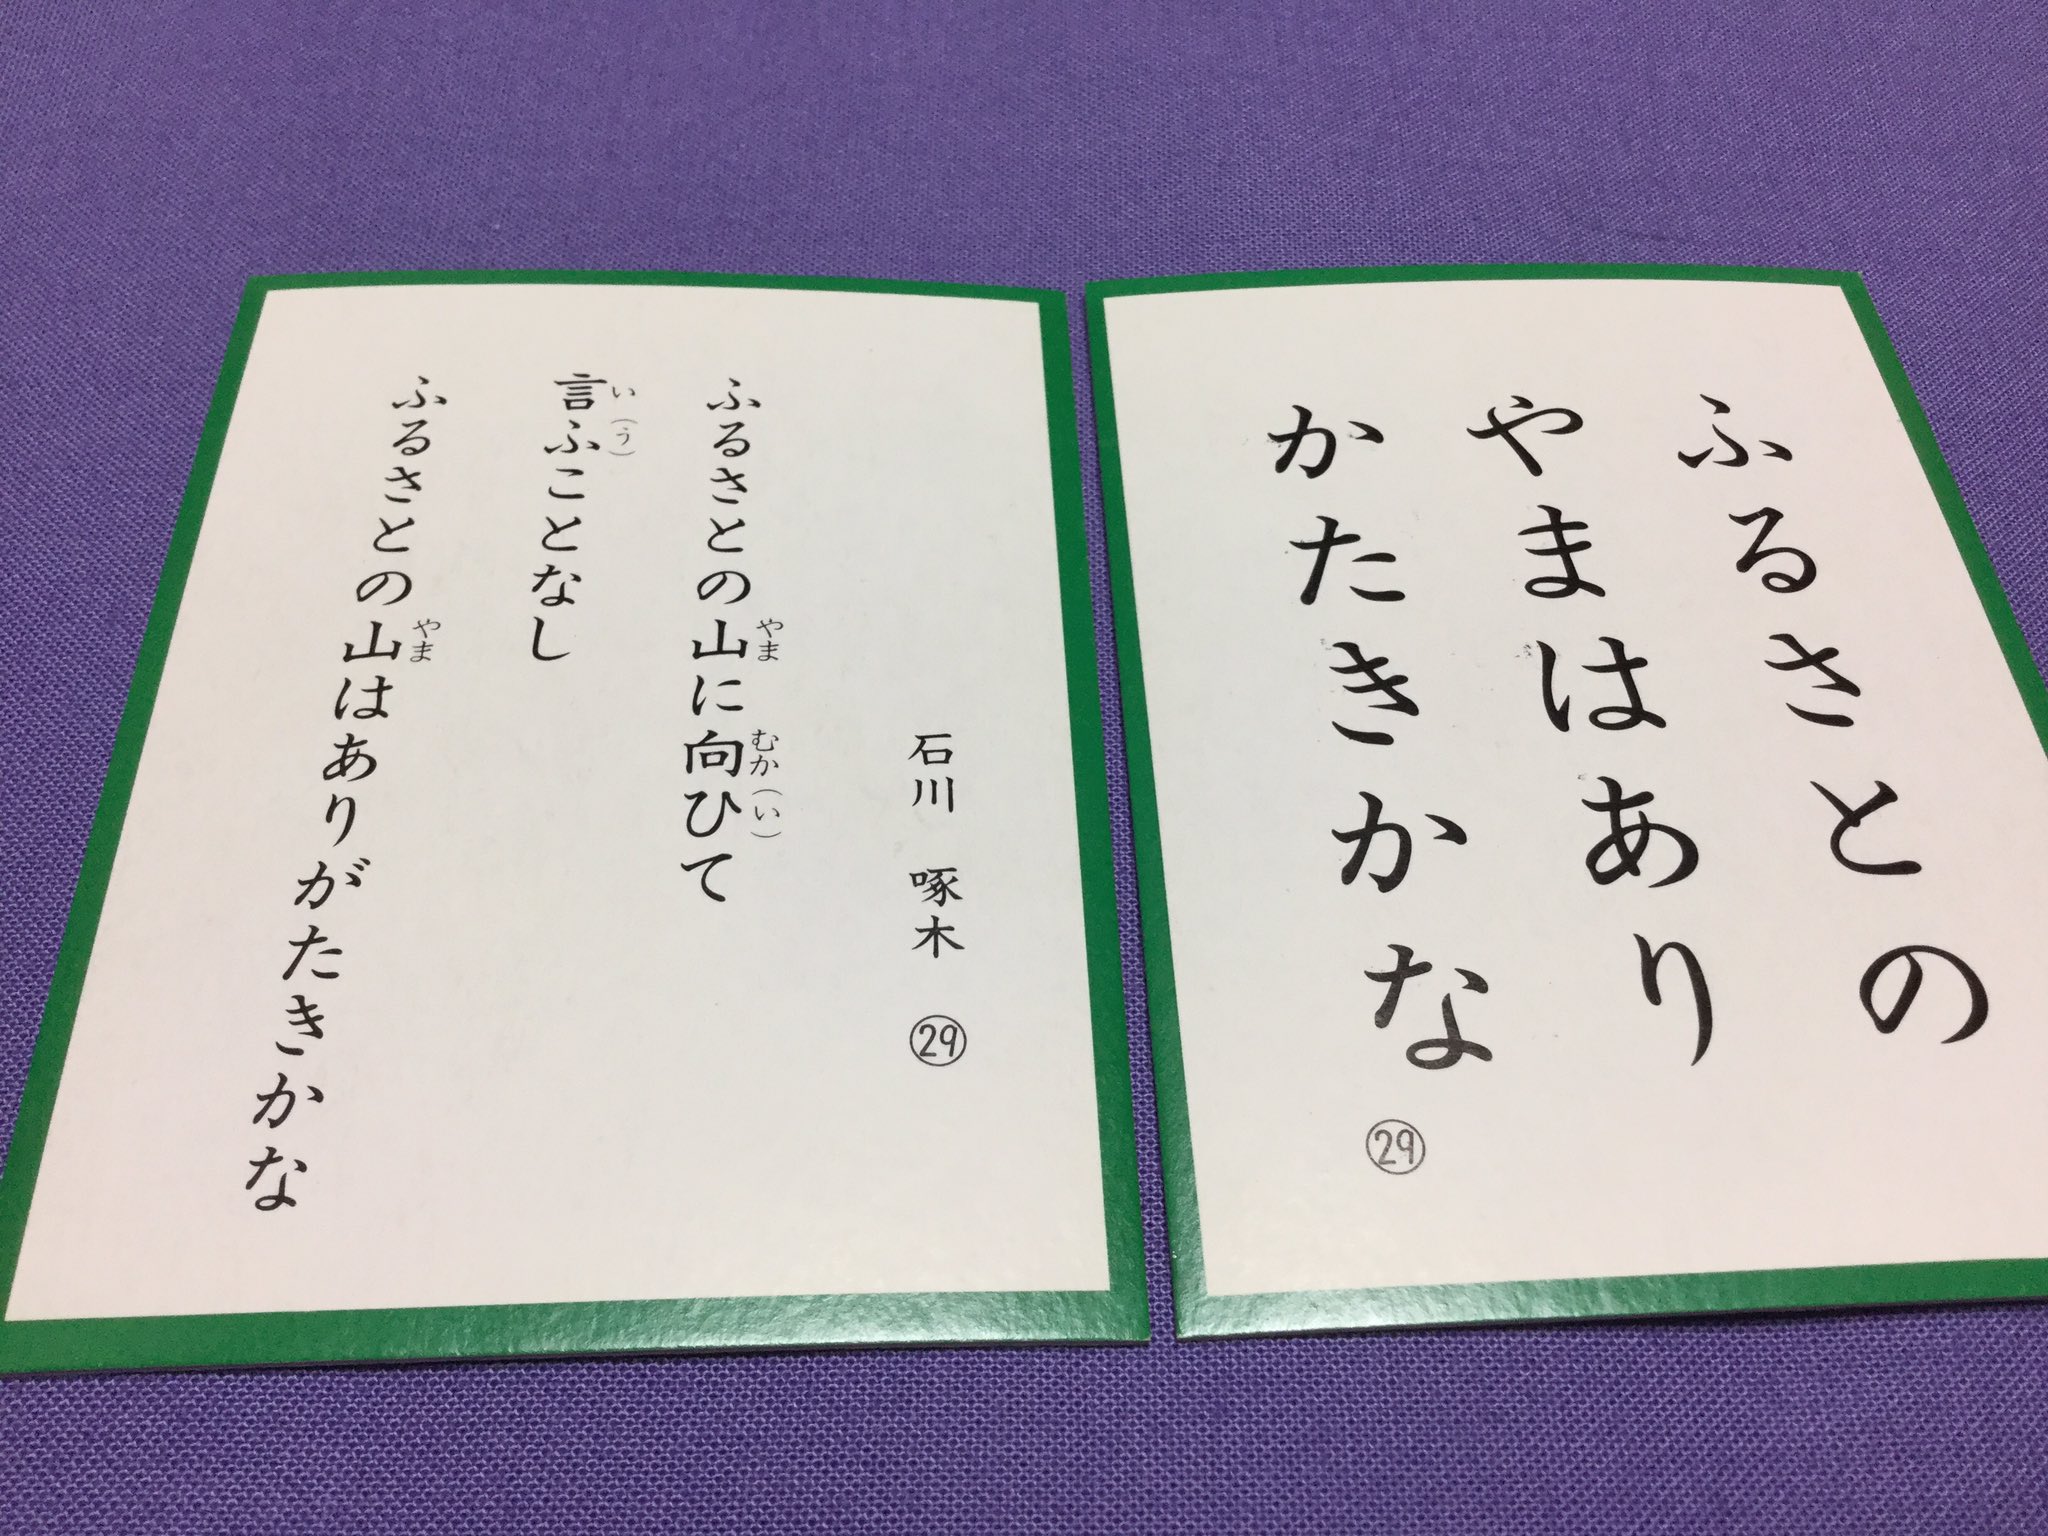 ふるさとの
やまはあり
かたきかな
㉙
石川 啄木 ㉙
ふるさとの山に向ひて
やま むか(い)
言ふことなし
い(う)
ふるさとの山はありがたきかな
やま